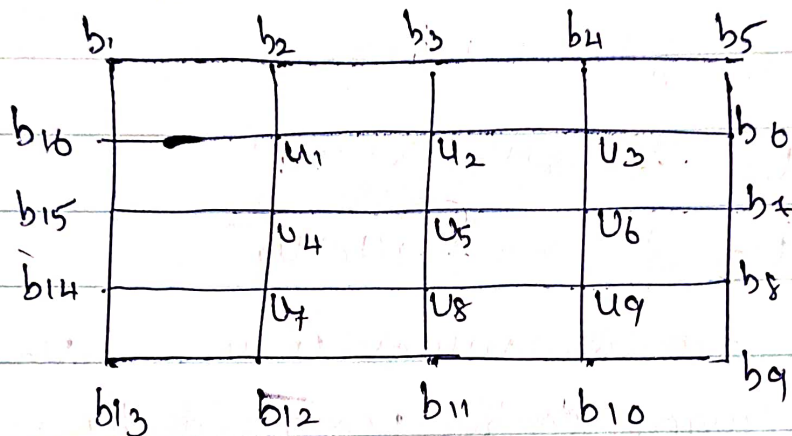 b1 b2 b3 b4 b5
b16 u1 u2 u3 b6
b15 u4 u5 u6 b7
b14 u7 u8 u9 b8
b9
b13 b12 b11 b10